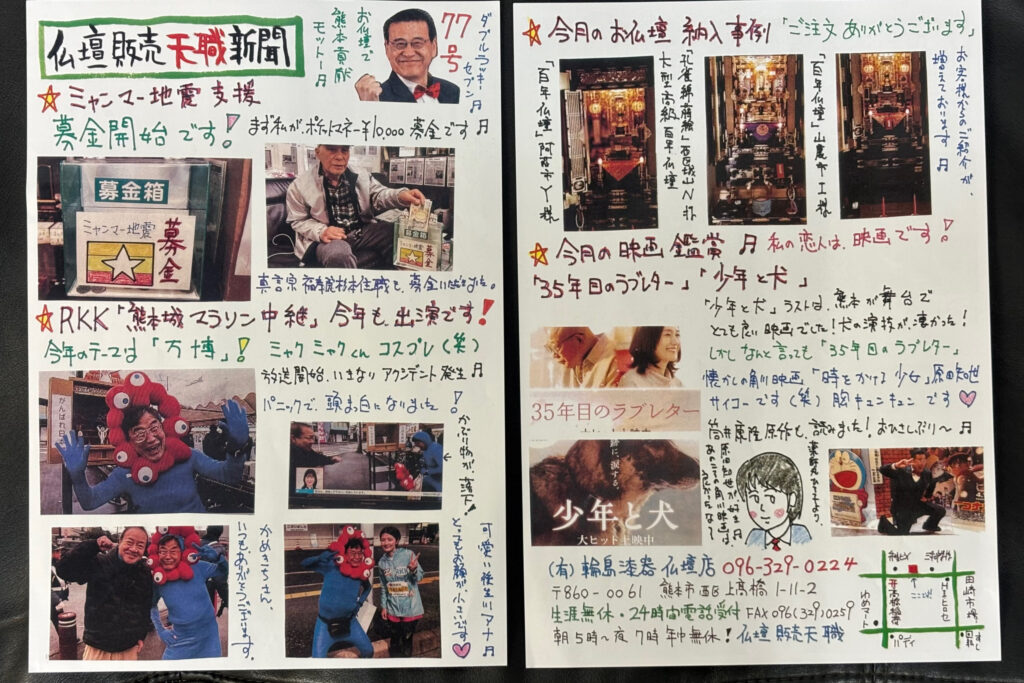 仏壇販売天職新聞
ダブルラッキーセブン♬
77号
お仏壇で
熊本貢献
モットー♬
☆ミャンマー地震支援
募金開始です!
まず私が、ポケットマネー¥10000募金です♬
募金箱
ミャンマー地震
募金
募金箱
ミャンマー地震
募金
☆RKK「熊本城マラソン中継」今年も、出演です!
今年のテーマは「万博」!ミャクミャクくんコスプレ(笑)
放送開始、いきなりアクシデント発生♬
パニックで、頭ま白になりました!
かぶり物が、落下!
がんばれ
かめきちさん、
いつもありがとうございます。
可愛い後生川アナ♬
とってもお顔が、小さいです♡
☆今月のお仏壇納入事例「ご注文ありがとうございます」
お客様からのご紹介が、
増えております♬
「百年仏壇」山鹿市I様
大型高級百年仏壇
「百年仏壇」阿蘇市Y様
☆今月の映画鑑賞♬私の恋人は、映画です!
「35年目のラブレター」「少年と犬」
「少年と犬」ラストは、熊本が舞台で
とても良い映画でした!犬の演技が、凄かった!
しかしなんと言っても「35年目のラブレター」
懐かしの角川映画、「時をかける少女」原田知世
サイコーです(笑)胸キュンキュンです♡
筒井康隆原作も、読みました!おひさしぶり〜♬
35年目のラブレター
少年と犬
大ヒット上映中
原田知世が好き♬
あのころの角川映画は、
(有)輪島漆器仏壇店 096-329-0224
〒860-0061 熊本市西区上高橋1-11-2
生涯無休・24時間電話受付 FAX096(329)0259
朝5時〜夜7時年中無休!仏壇販売天職
ここ
田崎市場
ゆめマート
パティ